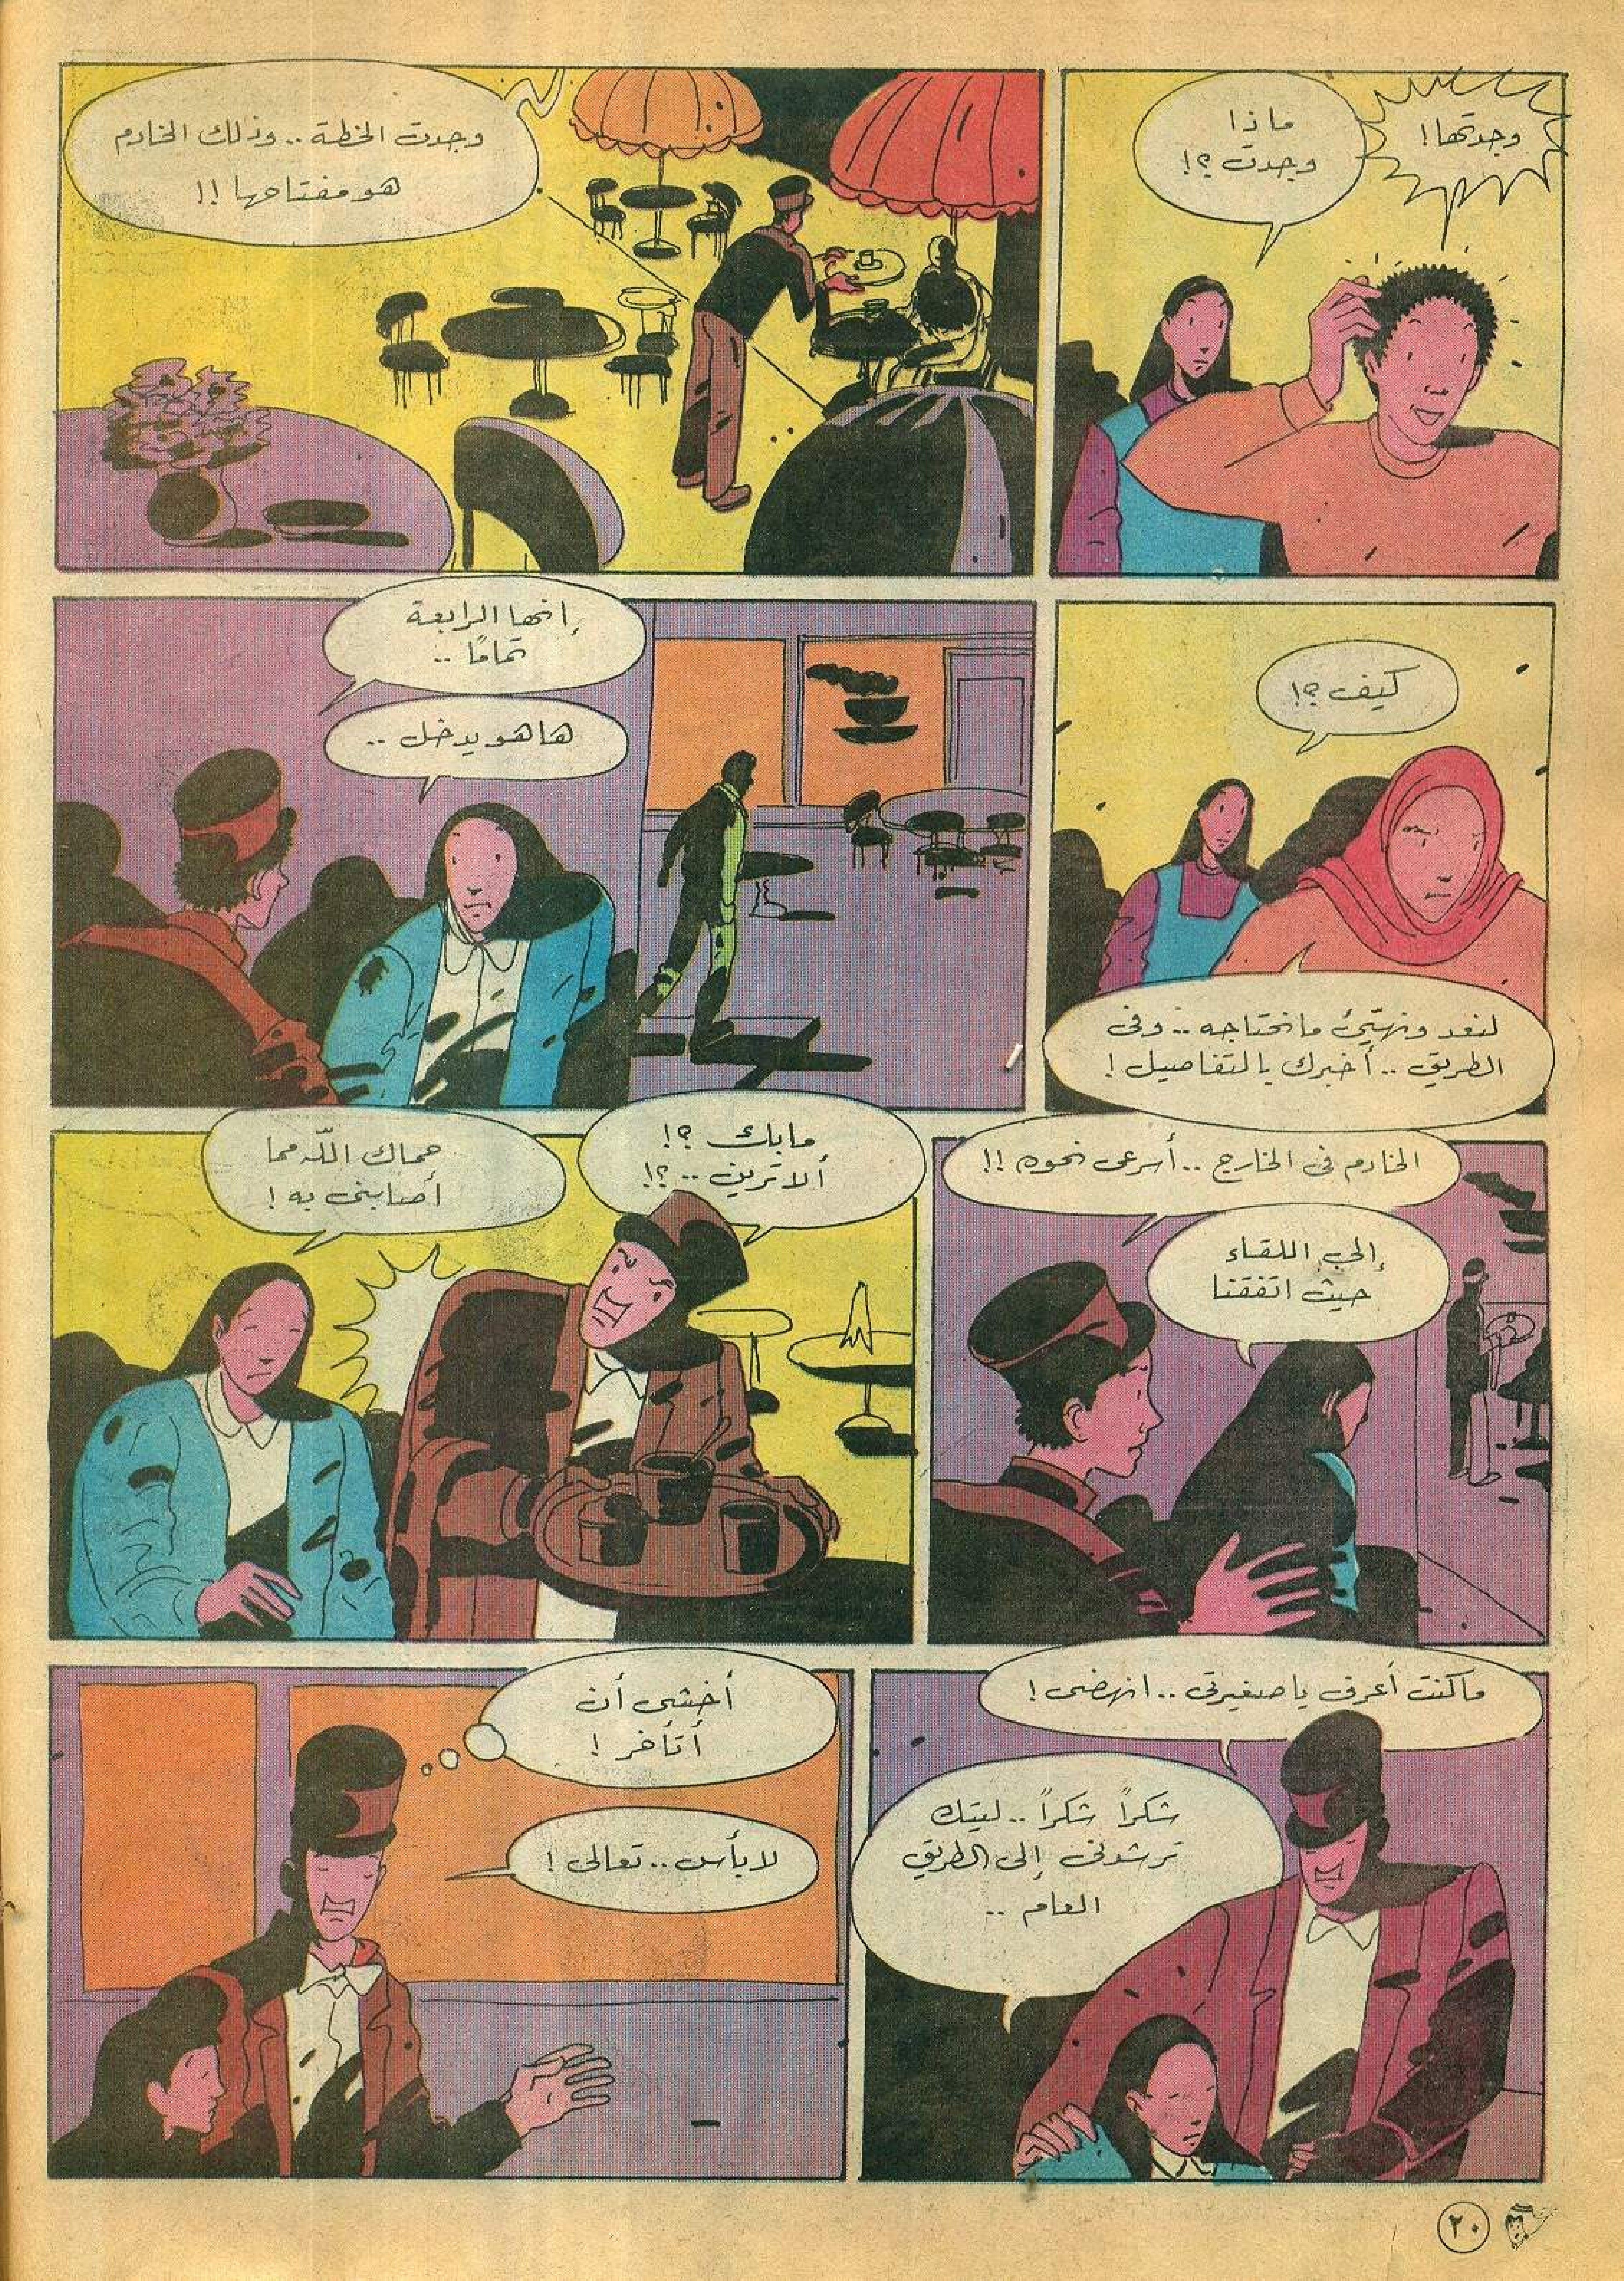 وجدتها!
ماذا
وجدت؟!
وجدت الخطة.. وذلك الخادم
هو مفتاحها!!
كيف؟!
لنعد ونهيّئ ما نحتاجه.. وفى
الطريق.. أخبرك بالتفاصيل!
إنها الرابعة
تمامًا..
ها هو يدخل..
الخادم فى الخارج.. أسرعى نحوه!!
إلى اللقاء
حيث اتفقنا
مابك؟!
ألا ترين..؟!
حماك اللّه مما
أصابنى به!
ما كنت أعرف يا صغيرتى.. انهضى!
شكراً شكراً.. ليتك
ترشدنى إلى الطريق
العام..
أخشى أن
أتأخر!
لا بأس.. تعالى!
٢٠